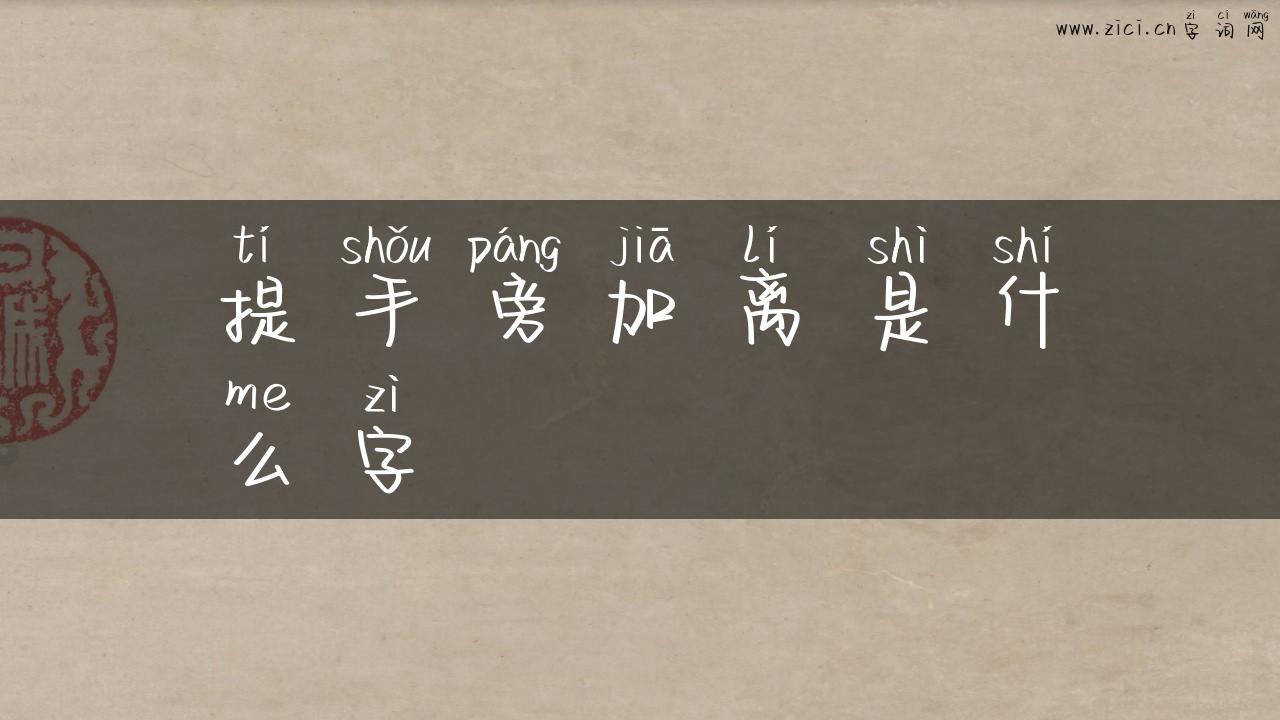 www.zici.cn
zì cí wǎng
字词网
tí shǒu páng jiā lí shì shí
提手旁加离是什
me zì
么字